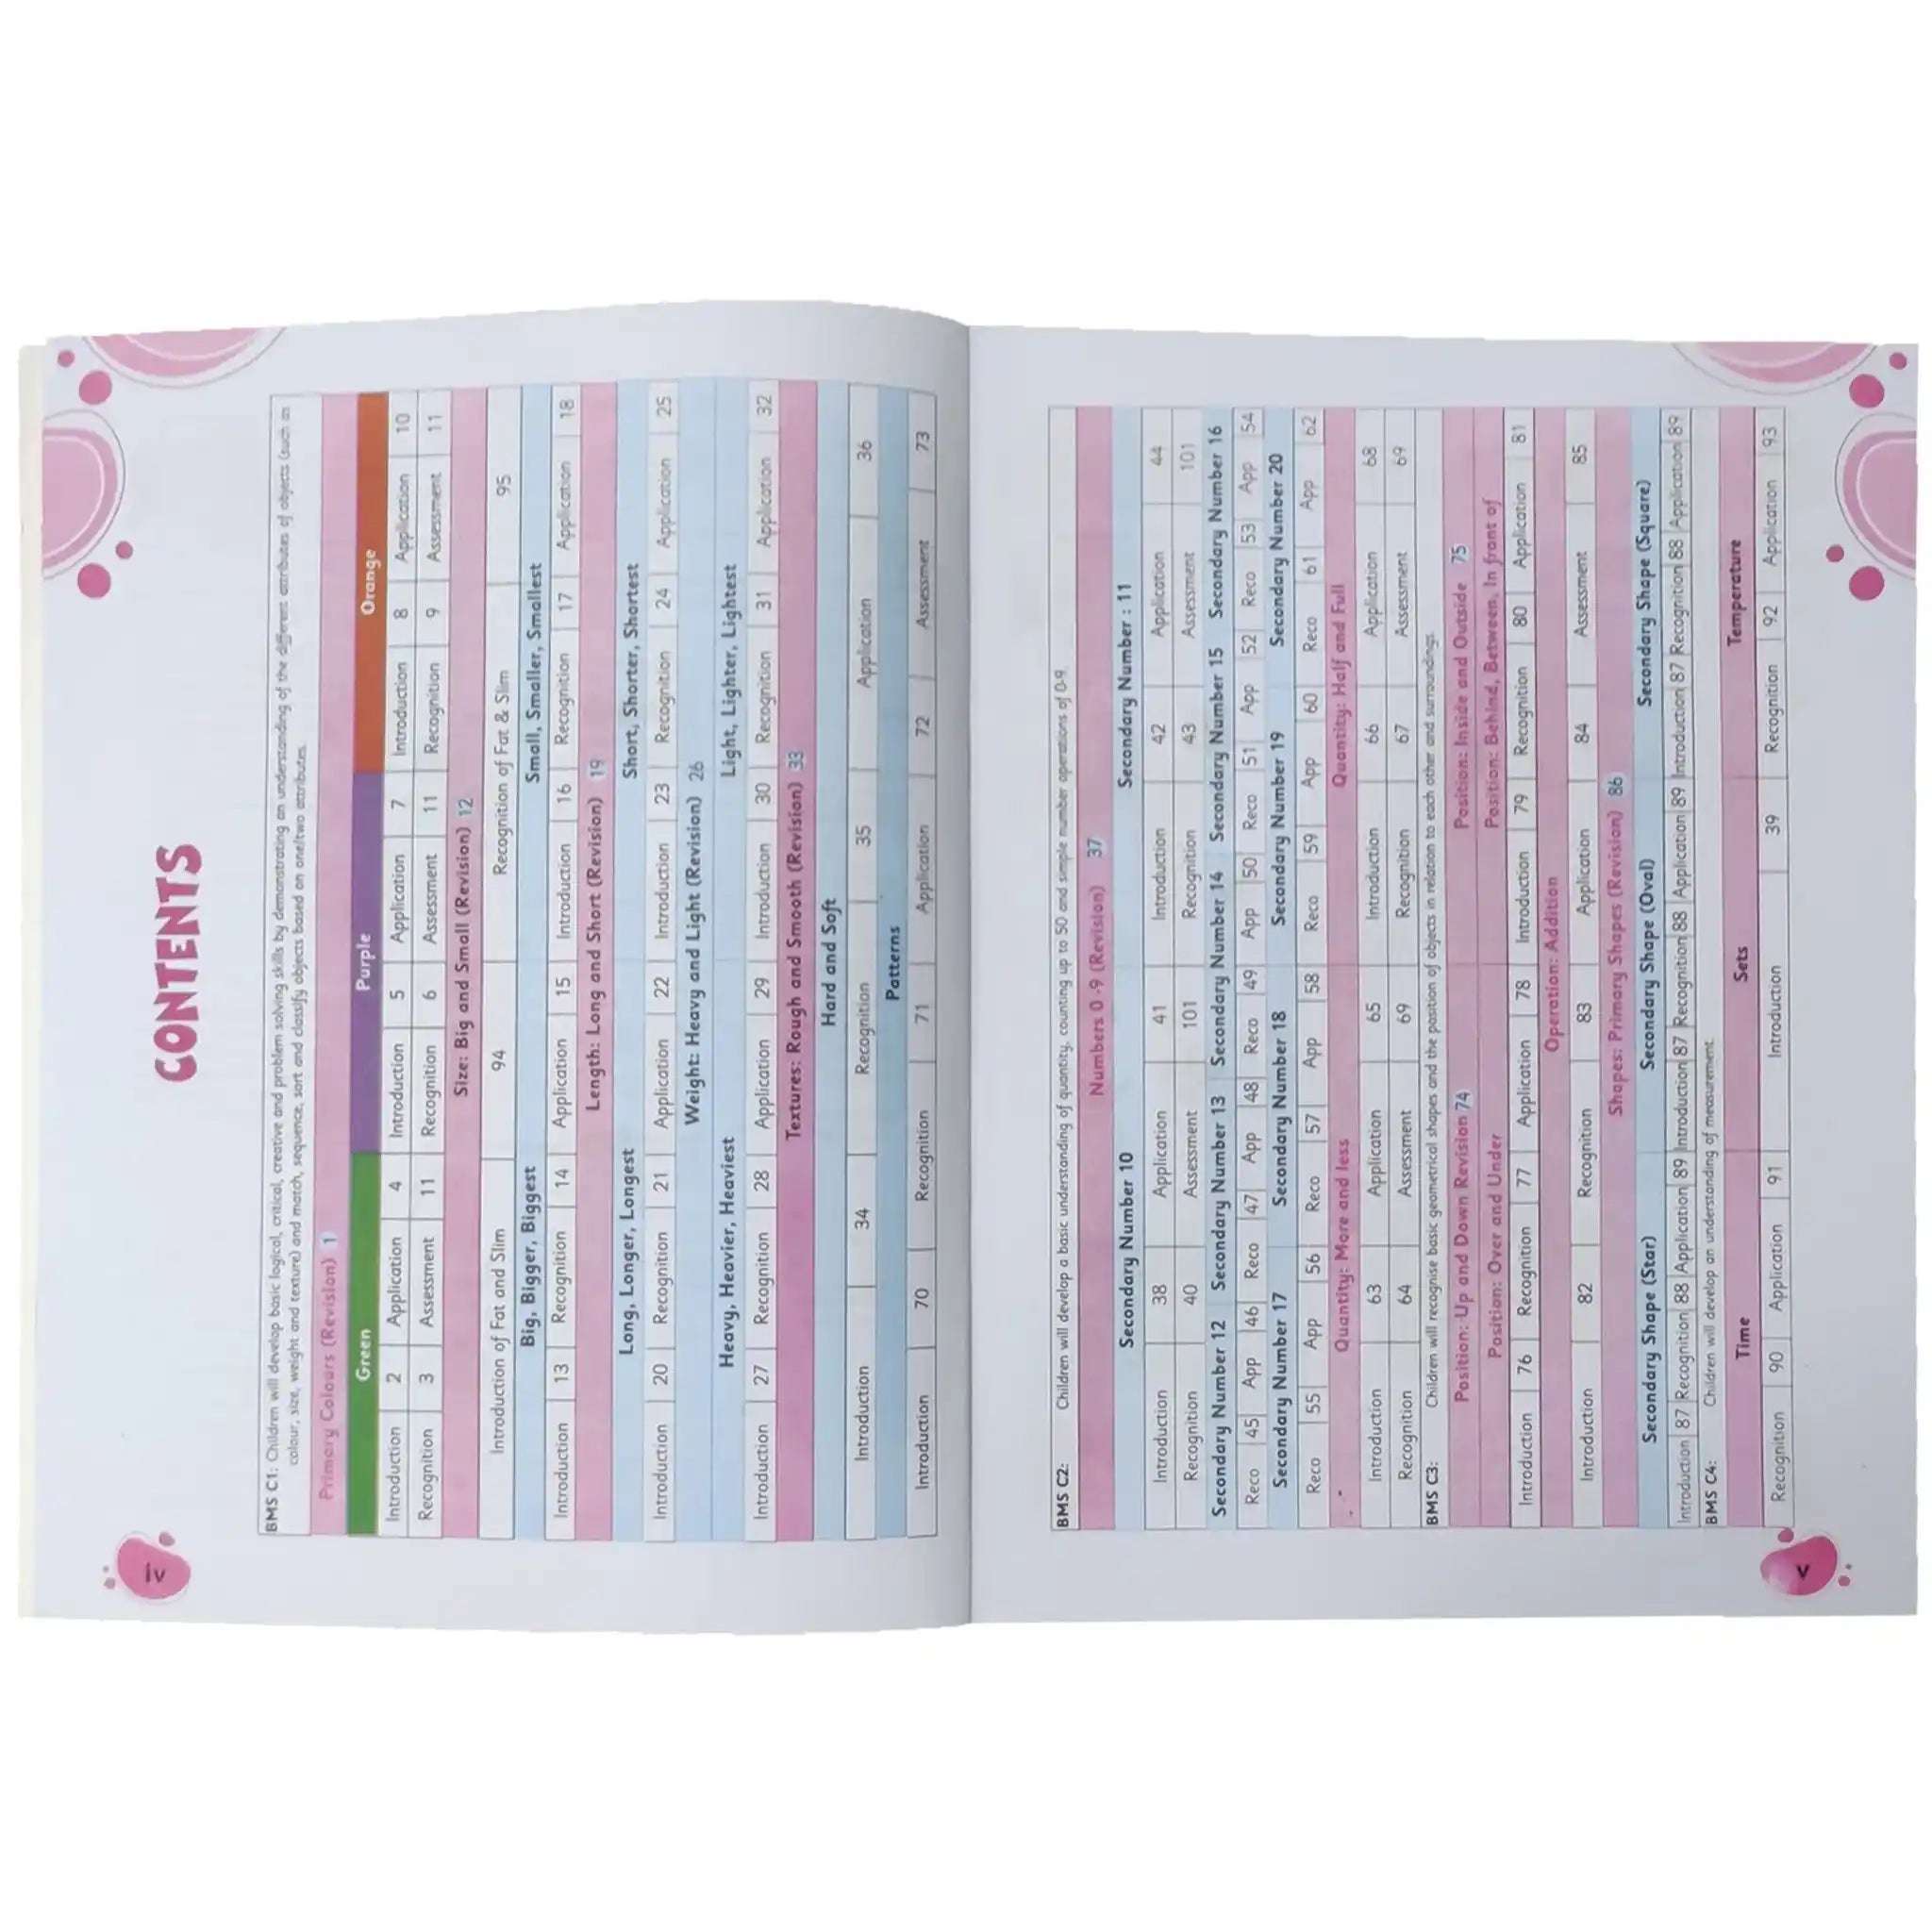 CONTENTS
BMS C1: Children will develop basic logical, critical, creative and problem solving skills by demonstrating an understanding of the different attributes of objects (such as
colour, size, weight and texture) and match, sequence, sort and classify objects based on one/two attributes.
Primary Colours (Revision) 1
Green Purple Orange
Introduction 2 Application 4 Introduction 5 Application 7 Introduction 8 Application 10
Recognition 3 Assessment 11 Recognition 6 Assessment 11 Recognition 9 Assessment 11
Size: Big and Small (Revision) 12
Introduction of Fat and Slim 94 Recognition of Fat & Slim 95
Big, Bigger, Biggest Small, Smaller, Smallest
Introduction 13 Recognition 14 Application 15 Introduction 16 Recognition 17 Application 18
Length: Long and Short (Revision) 19
Long, Longer, Longest Short, Shorter, Shortest
Introduction 20 Recognition 21 Application 22 Introduction 23 Recognition 24 Application 25
Weight: Heavy and Light (Revision) 26
Heavy, Heavier, Heaviest Light, Lighter, Lightest
Introduction 27 Recognition 28 Application 29 Introduction 30 Recognition 31 Application 32
Textures: Rough and Smooth (Revision) 33
Hard and Soft
Introduction 34 Recognition 35 Application 36
Patterns
Introduction 70 Recognition 71 Application 72 Assessment 73
iv
BMS C2: Children will develop a basic understanding of quantity, counting up to 50 and simple number operations of 0-9.
Numbers 0 -9 (Revision) 37
Secondary Number 10 Secondary Number : 11
Introduction 38 Application 41 Introduction 42 Application 44
Recognition 40 Assessment 101 Recognition 43 Assessment 101
Secondary Number 12 Secondary Number 13 Secondary Number 14 Secondary Number 15 Secondary Number 16
Reco 45 App 46 Reco 47 App 48 Reco 49 App 50 Reco 51 App 52 Reco 53 App 54
Secondary Number 17 Secondary Number 18 Secondary Number 19 Secondary Number 20
Reco 55 App 56 Reco 57 App 58 Reco 59 App 60 Reco 61 App 62
Quantity: More and less Quantity: Half and Full
Introduction 63 Application 65 Introduction 66 Application 68
Recognition 64 Assessment 69 Recognition 67 Assessment 69
BMS C3: Children will recognise basic geometrical shapes and the position of objects in relation to each other and surroundings.
Position: Up and Down Revision 74 Position: Inside and Outside 75
Position: Over and Under Position: Behind, Between, In front of
Introduction 76 Recognition 77 Application 78 Introduction 79 Recognition 80 Application 81
Operation: Addition
Introduction 82 Recognition 83 Application 84 Assessment 85
Shapes: Primary Shapes (Revision) 86
Secondary Shape (Star) Secondary Shape (Oval) Secondary Shape (Square)
Introduction 87 Recognition 88 Application 89 Introduction 87 Recognition 88 Application 89 Introduction 87 Recognition 88 Application 89
BMS C4: Children will develop an understanding of measurement.
Time Sets Temperature
Recognition 90 Application 91 Introduction 39 Recognition 92 Application 93
v